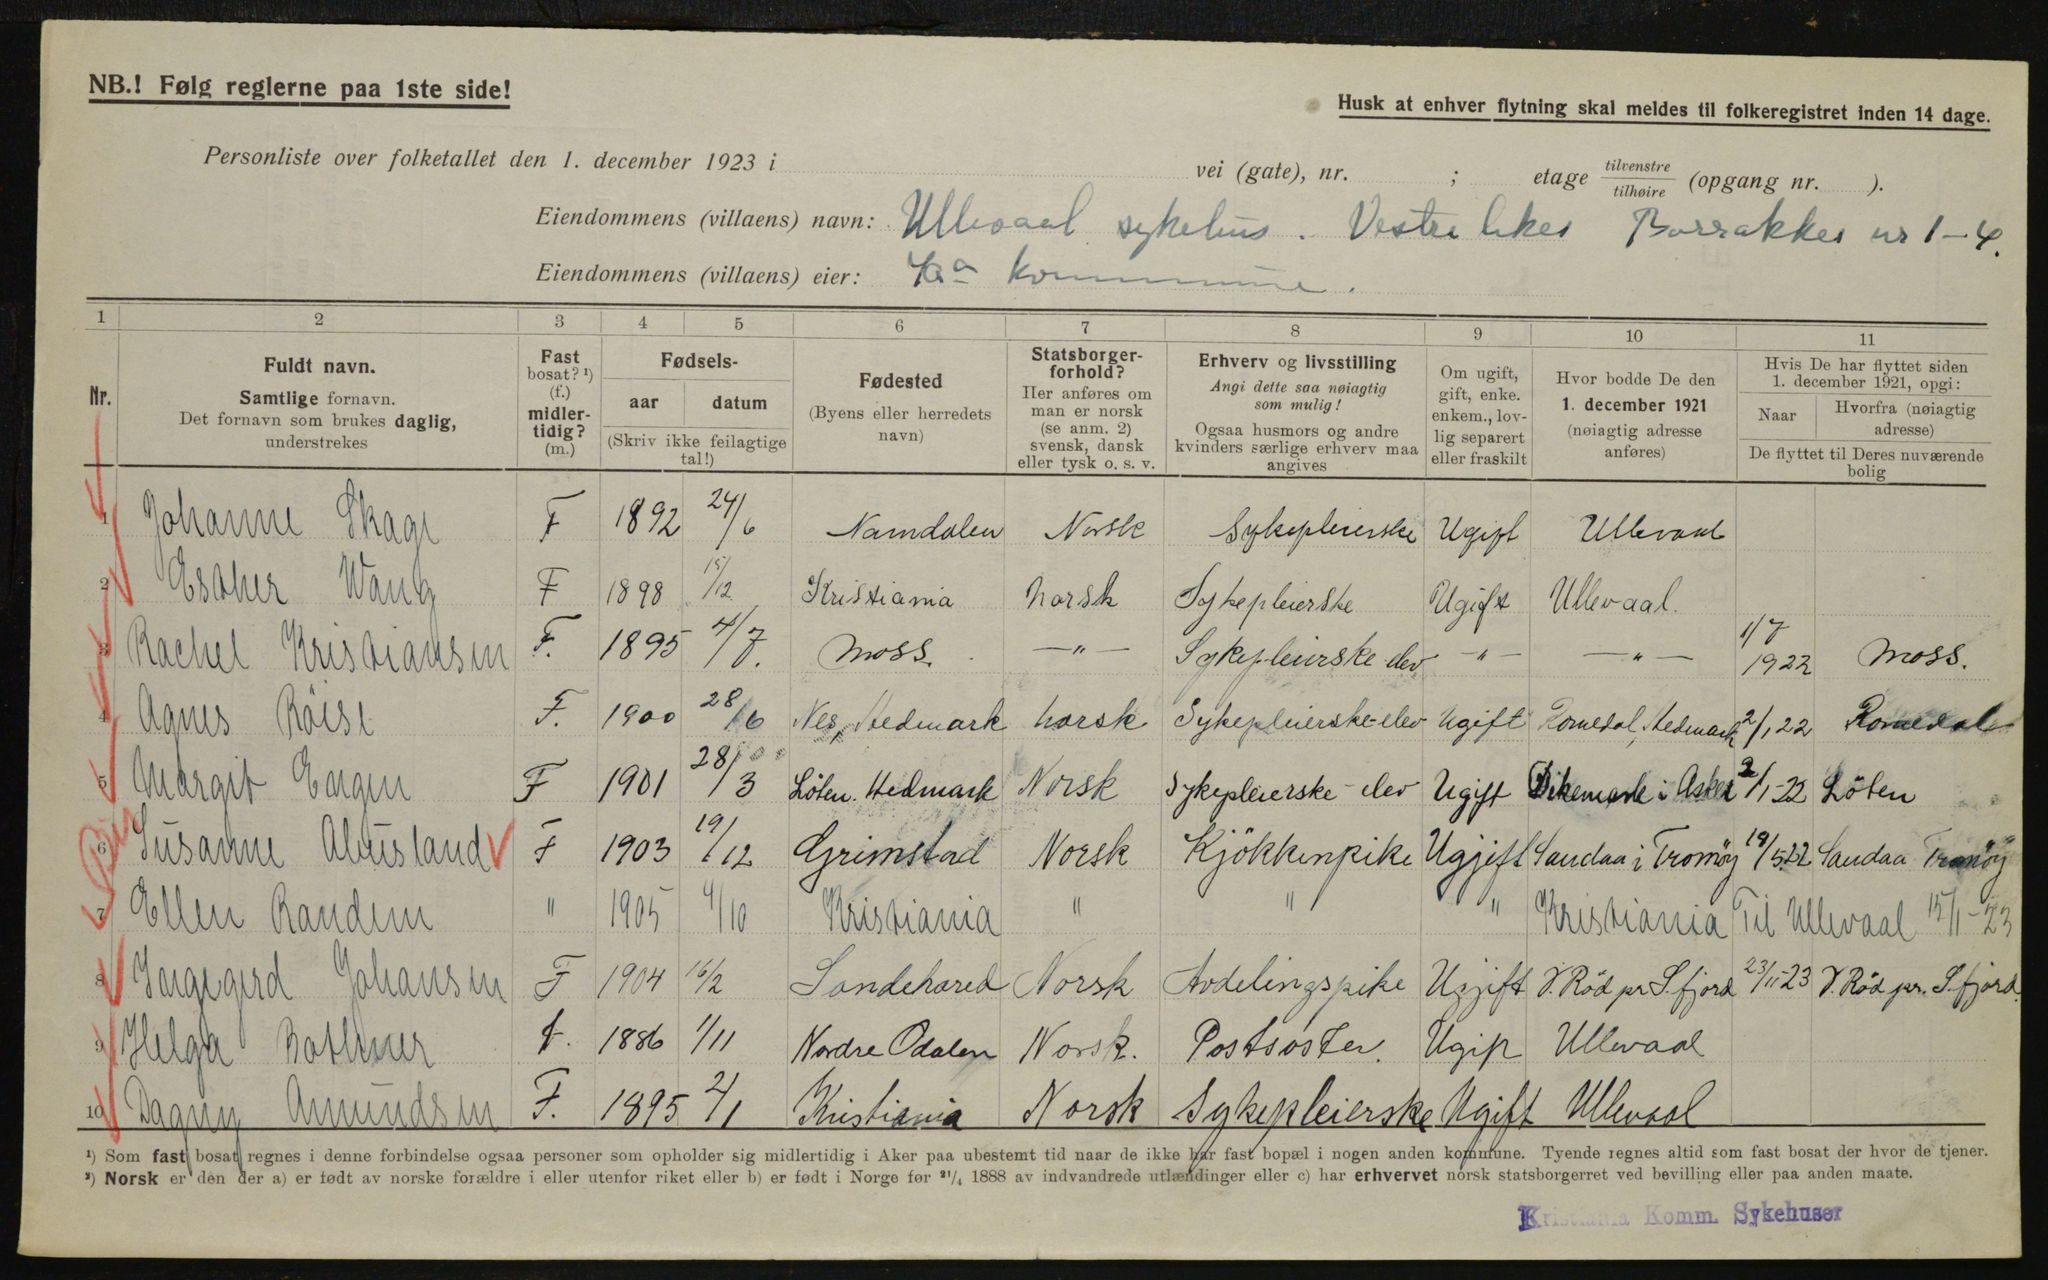 NB.! Følg reglerne paa 1ste side!
Husk at enhver flytning skal meldes til folkeregistret inden 14 dage.
Personliste over folketallet den 1. december 1923 i vei (gate), nr. ; etage tilvenstre tilhøire (opgang nr. ).
Eiendommens (villaens) navn: Ullevaal sykehus. Vestre Barrakker nr 1-4.
Eiendommens (villaens) eier: Kra kommune.
1 2 3 4 5 6 7 8 9 10 11
Nr.
Fuldt navn.
Samtlige fornavn.
Det fornavn som brukes daglig,
understrekes
Fast
bosat? ¹)
(f.)
midler-
tidig?
(m.)
Fødsels-
aar datum
(Skriv ikke feilagtige
tal!)
Fødested
(Byens eller herredets
navn)
Statsborger-
forhold?
Her anføres om
man er norsk
(se anm. 2)
svensk, dansk
eller tysk o. s. v.
Erhverv og livsstilling
Angi dette saa nøiagtig
som mulig!
Ogsaa husmors og andre
kvinders særlige erhverv maa
angives
Om ugift,
gift, enke.
enkem., lov-
lig separert
eller fraskilt
Hvor bodde De den
1. december 1921
(nøiagtig adresse
anføres)
Hvis De har flyttet siden
1. december 1921, opgi:
Naar Hvorfra (nøiagtig
adresse)
De flyttet til Deres nuværende
bolig
1 Johanne Skage F 1892 24/6 Namdalen Norsk Sykepleierske Ugift Ullevaal
2 Esther Wang F 1898 15/12 Kristiania norsk Sykepleierske Ugift Ullevaal.
3 Rachel Kristiansen F. 1895 4/7. Moss. —"— Sykepleierske-elev —"— —"— 1/7 1922 Moss.
4 Agnes Röise F. 1900 28/6 Nes, Hedmark norsk Sykepleierske-elev Ugift Romedal, Hedmark 2/1 22 Romedal
5 Margit Engen F 1901 28/3 Löten. Hedmark Norsk Sykepleierske-elev Ugift Dikemark i Asker 2/1-22 Löten
6 Susanne F 1903 19/12 Grimstad Norsk Kjökkenpike Ugift Sandaa i Tromöy 19/5.22 Sandaa Tromöy
7 Ellen Randem " 1905 4/10 Kristiania " " " Kristiania Til Ullevaal 15/1-23
8 Ingegerd Johansen F 1904 16/2 Sandehered Norsk Avdelingspike Ugift V. Röd pr S.fjord 23/11-23 V. Röd pr. S.fjord.
9 Helga Bothner f. 1886 1/11 Nordre Odalen Norsk. Postsøster. Ugip Ullevaal
10 Dagny Amundsen F. 1895 2/1 Kristiania Norsk Sykepleierske Ugift Ullevaal
¹) Som fast bosat regnes i denne forbindelse ogsaa personer som opholder sig midlertidig i Aker paa ubestemt tid naar de ikke har fast bopæl i nogen anden kommune. Tyende regnes altid som fast bosat der hvor de tjener.
²) Norsk er den der a) er født av norske forældre i eller utenfor riket eller b) er født i Norge før 21/4 1888 av indvandrede utlændinger eller c) har erhvervet norsk statsborgerret ved bevilling eller paa anden maate.
Kristiania Komm. Sykehuser